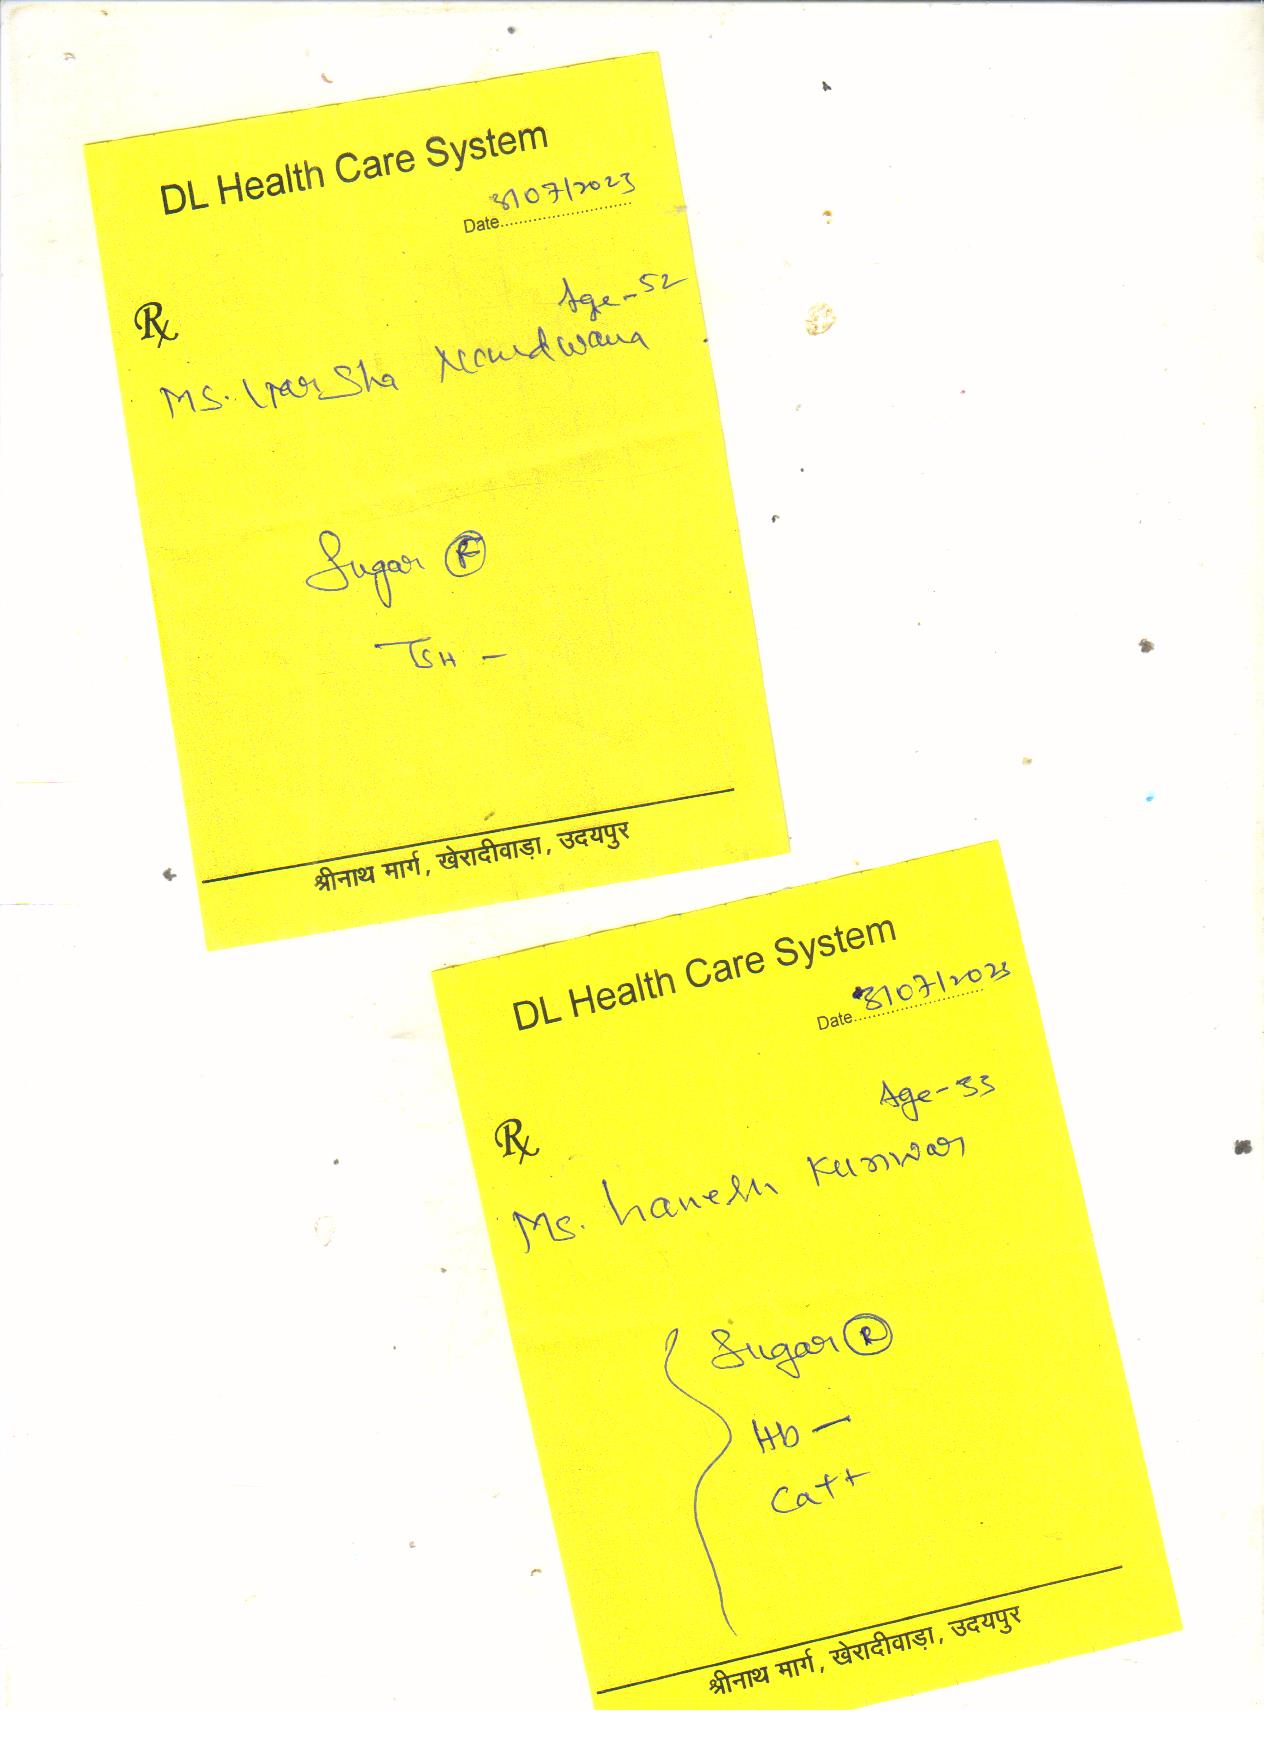 DL Health Care System
31/07/2023
Date
Age-52
Rx
MS. Varsha Nandwana
Sugar F
TSH -
श्रीनाथ मार्ग, खेरादीवाड़ा, उदयपुर
DL Health Care System
31/07/2023
Date
Age-33
Rx
Ms. Kunwar
Sugar R
Hb -
Ca++
श्रीनाथ मार्ग, खेरादीवाड़ा, उदयपुर